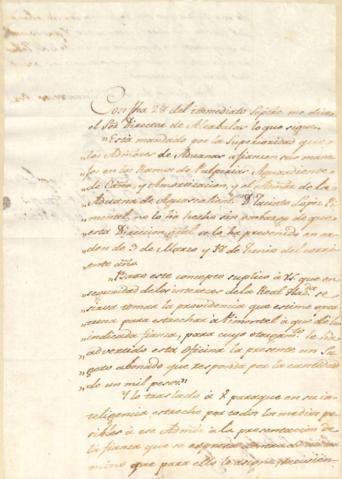 Con fha 28 del immediato Septre me dice
el Sor Director de Alcabalas lo que sigue.
"Está mandado por la Superioridad que
"los Admores de Aduanas afianzen sus mane
"jos en los Ramos de Pulperias, Aguardiente
"de Caña, y Amortizacion, y el Admor de la
"Aduana de Aguascalient. D. Jacinto Lopez Pi
"mentel, no lo ha hecho sin embargo de que
"esta Direccion gral. se lo ha prevenido en or
"den de 3 de Marzo y 18 de Junio del corri
"ente año.
"Bajo este concepto suplico á VS. que en
"seguridad de los intereses de la Real Hazda. se
"sirva tomar la providencia que estime opor
"tuna para estrechar á Pimentel á que dé la
"indicada fianza, para cuyo otorgamto. le há
"advertido esta oficina la presente un Su
"geto abonado que responda por la cantidad
"de un mil pesos."
Y lo traslado á V. para que en su in
teligencia estreche por todos los medios po
sibles á ese Admor. á la presentacion de
la fianza que se
mino que para ello le asigne, precision